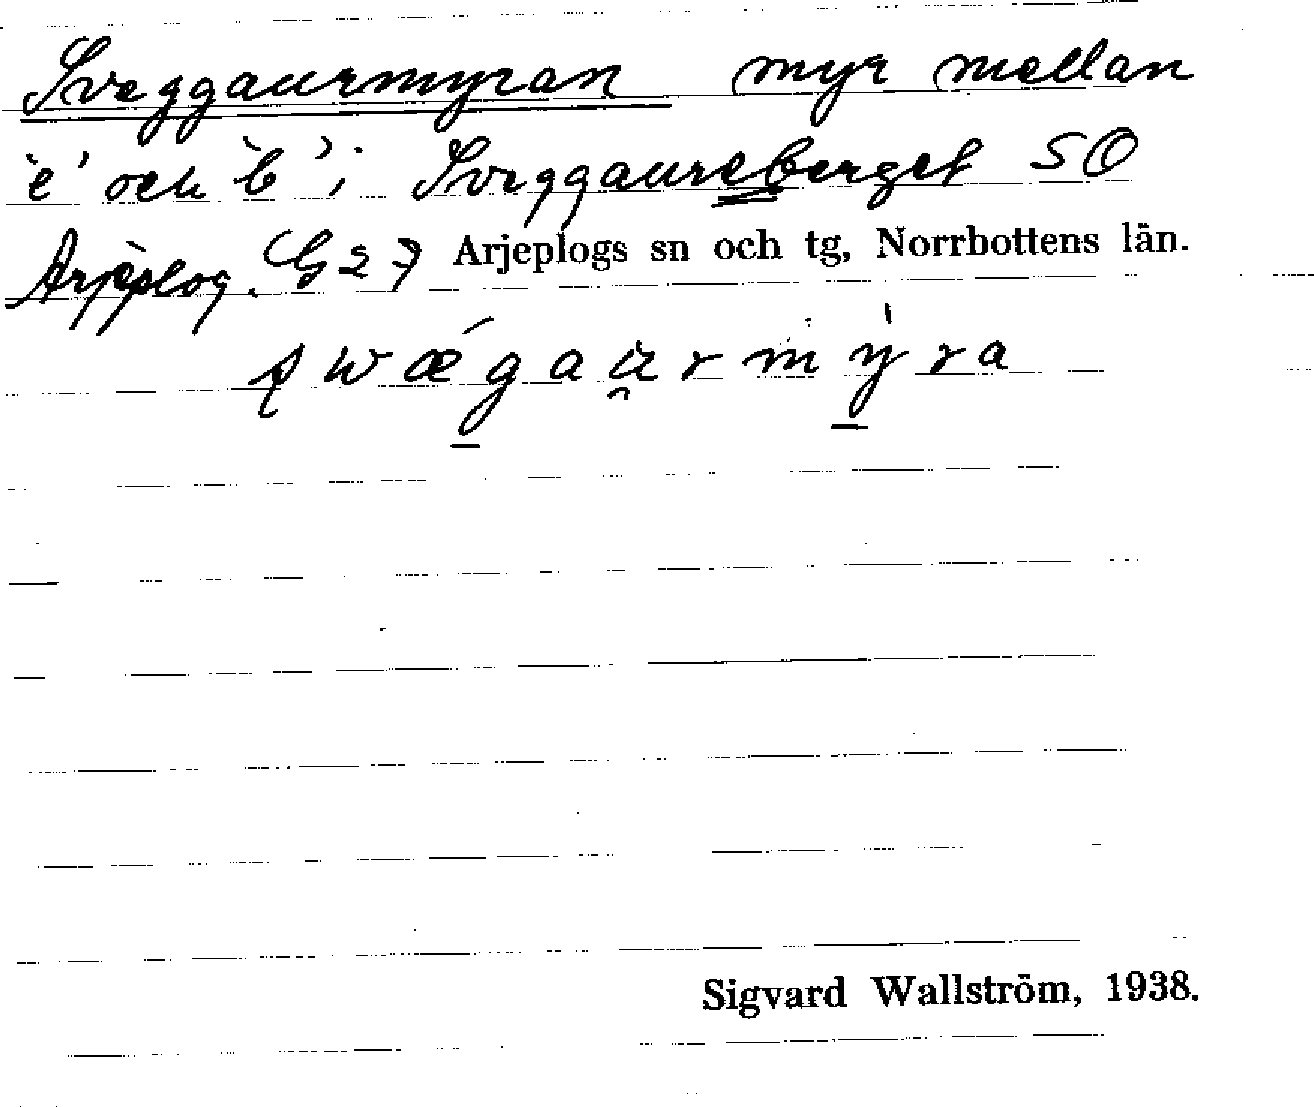 Sveggaurmyran myr mellan
'e' och 'b' i Sveggaureberget SO
Arjeplog. G27 Arjeplogs sn och tg, Norrbottens län.
Sigvard Wallström, 1938.